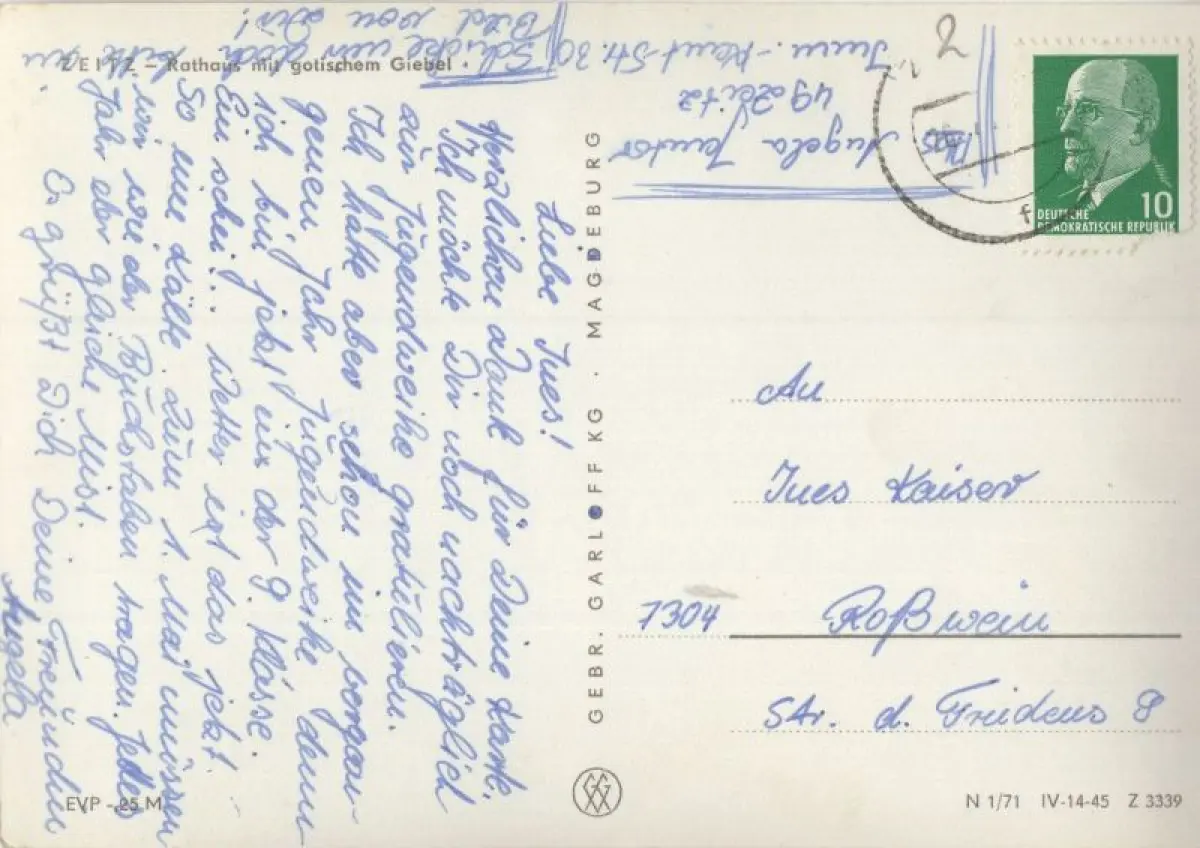 ZEITZ – Rathaus mit gotischem Giebel
Liebe Ines!
Herzlichen Dank für Deine Karte.
Ich möcht Dir noch nachträglich
zur Jugendweihe gratulieren.
Ich hatte aber schon im vergan-
genen Jahr Jugendweihe denn
ich bin jetzt in der 9. Klasse.
Ein schei... Wetter ist das jetzt.
So eine Kälte. Zum 1. Mai müssen
wir wieder Buchstaben tragen. Jedes
Jahr aber gleiche Mist.
Es grüßt Dich Deine Freundin
Angela
Schicke mir doch bitte ein
Bild von Dir!
Abs Angela
49 Zeitz
Imm.-Kant-Str. 30
2
DEUTSCHE
DEMOKRATISCHE REPUBLIK
10
f
An
Ines Kaiser
7304 Roßwein
Str. d. Fridens 8
GEBR. GARLOFF KG · MAGDEBURG
EVP -,25 M
N 1/71 IV-14-45 Z 3339